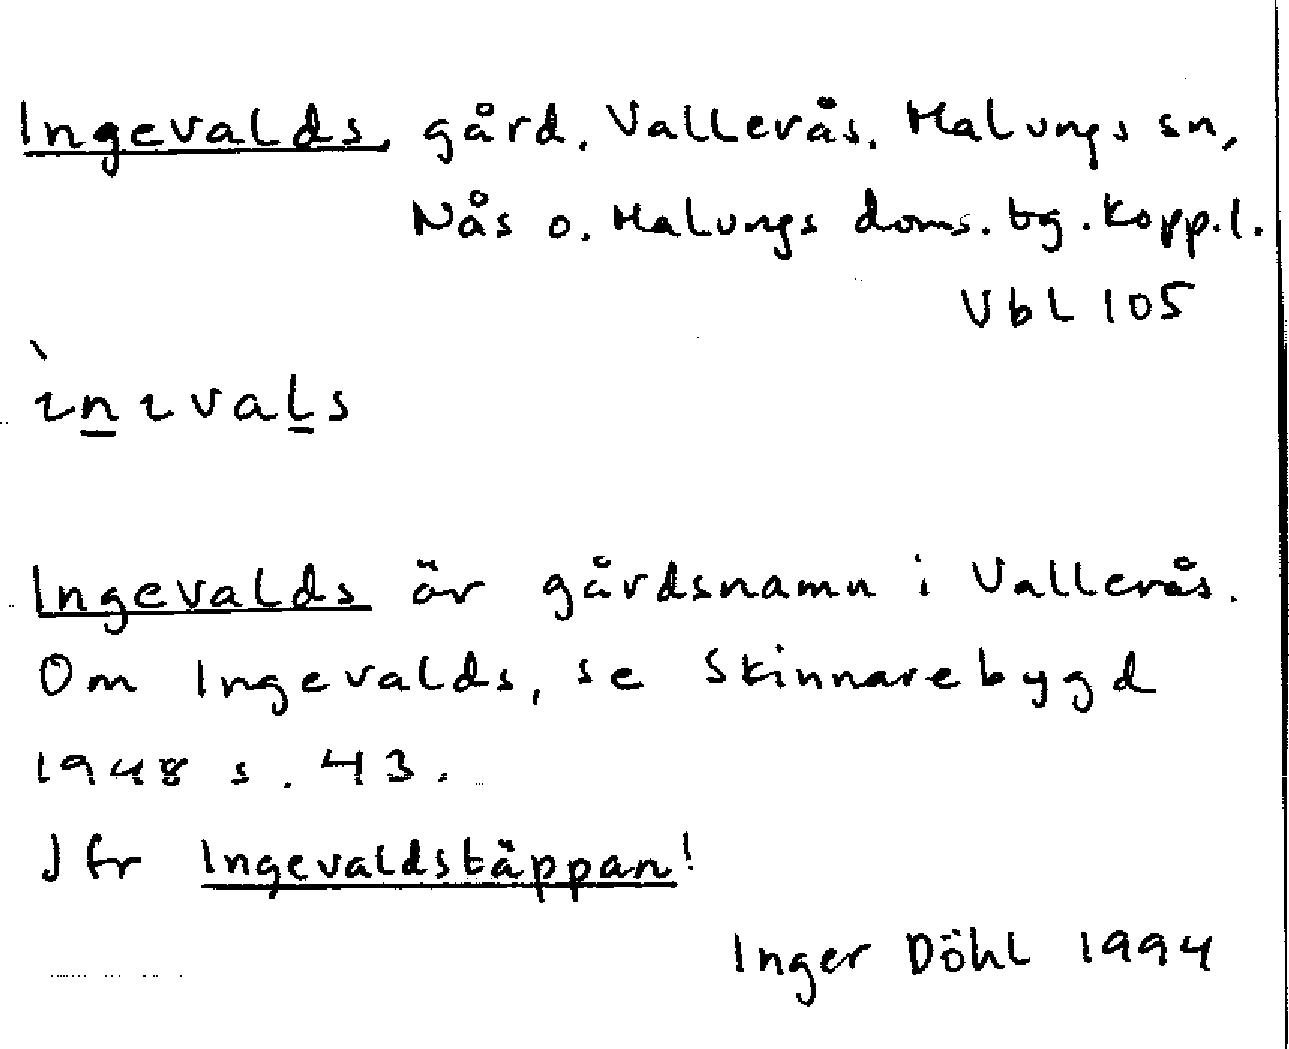 Ingevalds, gård. Vallerås. Malungs sn,
Nås o. Malungs doms. tg. Kopp.l.
Vbl 105
ìnıvals
Ingevalds är gårdsnamn i Vallerås.
Om Ingevalds, se Skinnarebygd
1948 s. 43.
Jfr Ingevaldstäppan!
Inger Döhl 1994